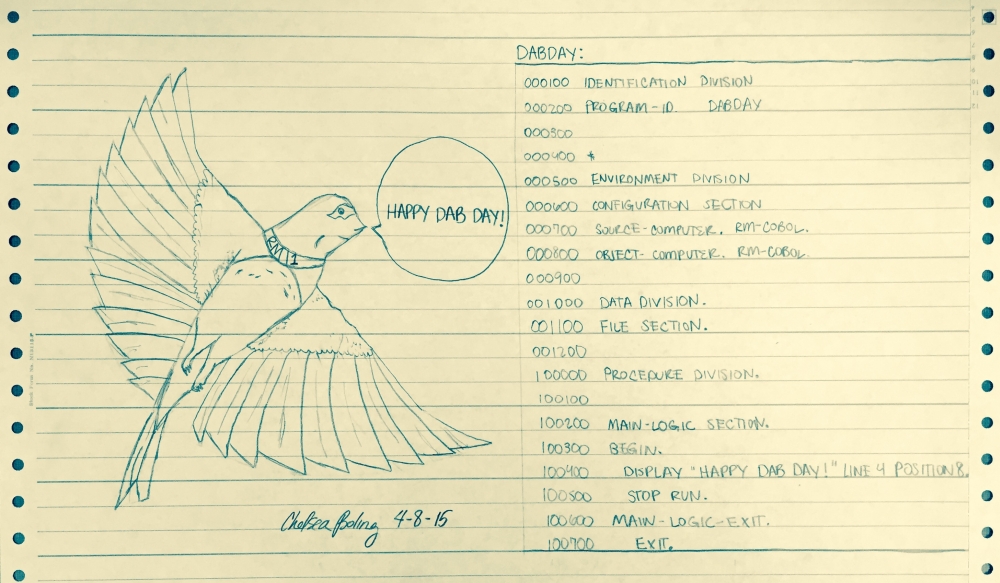 DABDAY:
000100 IDENTIFICATION DIVISION
000200 PROGRAM-ID. DABDAY
000300
000400 *
000500 ENVIRONMENT DIVISION
000600 CONFIGURATION SECTION
000700 SOURCE-COMPUTER. RM-COBOL.
000800 OBJECT-COMPUTER. RM-COBOL.
000900
001000 DATA DIVISION.
001100 FILE SECTION.
001200
100000 PROCEDURE DIVISION.
100100
100200 MAIN-LOGIC SECTION.
100300 BEGIN.
100400 DISPLAY "HAPPY DAB DAY!" LINE 4 POSITION 8.
100500 STOP RUN.
100600 MAIN-LOGIC-EXIT.
100700 EXIT.
HAPPY DAB DAY!
RM 1
Chelsea Boling 4-8-15